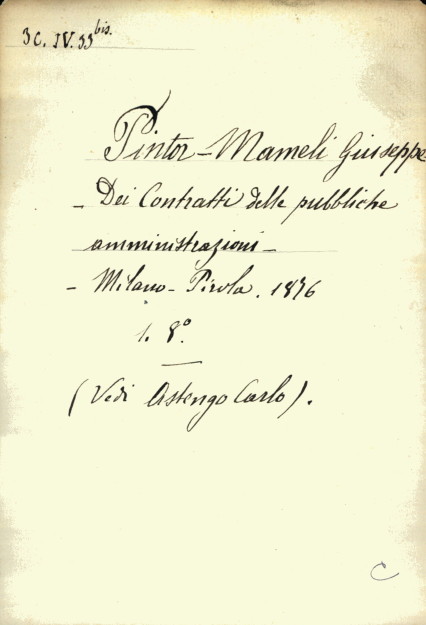 3C. IV. 33 bis.
Pintor-Mameli Giuseppe
- Dei Contratti delle pubbliche
amministrazioni -
- Milano - Pirola. 1876
1. 8º
(Vedi Astengo Carlo).
C